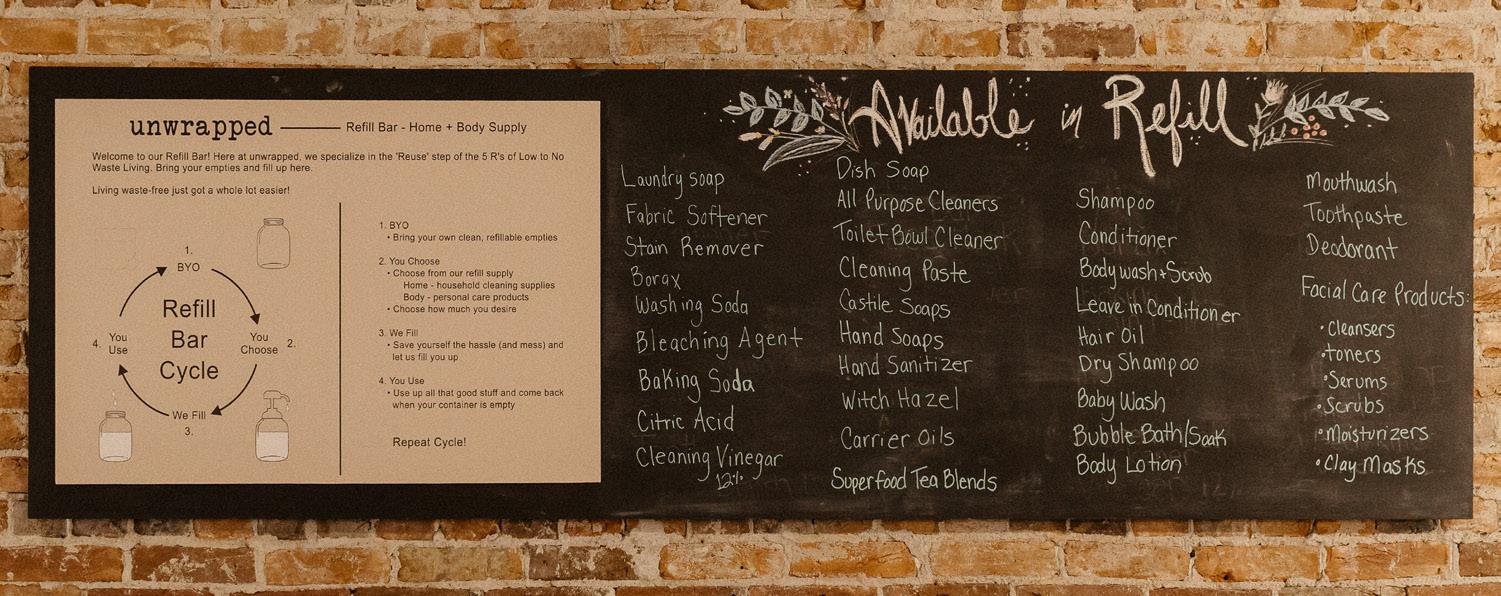 unwrapped Refill Bar - Home + Body Supply
Welcome to our Refill Bar! Here at unwrapped, we specialize in the 'Reuse' step of the 5 R's of Low to No
Waste Living. Bring your empties and fill up here.
Living waste-free just got a whole lot easier!
1.
BYO
Refill
Bar
Cycle
You
Choose 2.
We Fill
3.
4. You
Use
1. BYO
• Bring your own clean, refillable empties
2. You Choose
• Choose from our refill supply
Home - household cleaning supplies
Body - personal care products
• Choose how much you desire
3. We Fill
• Save yourself the hassle (and mess) and
let us fill you up
4. You Use
• Use up all that good stuff and come back
when your container is empty
Repeat Cycle!
Available in Refill
Laundry soap
Fabric Softener
Stain Remover
Borax
Washing Soda
Bleaching Agent
Baking Soda
Citric Acid
Cleaning Vinegar
12%
Dish Soap
All Purpose Cleaners
Toilet Bowl Cleaner
Cleaning Paste
Castile Soaps
Hand Soaps
Hand Sanitizer
Witch Hazel
Carrier Oils
Superfood Tea Blends
Shampoo
Conditioner
Body wash + Scrub
Leave in Conditioner
Hair Oil
Dry Shampoo
Baby Wash
Bubble Bath/Soak
Body Lotion
Mouthwash
Toothpaste
Deodorant
Facial Care Products:
• Cleansers
• toners
• Serums
• Scrubs
• Moisturizers
• Clay Masks